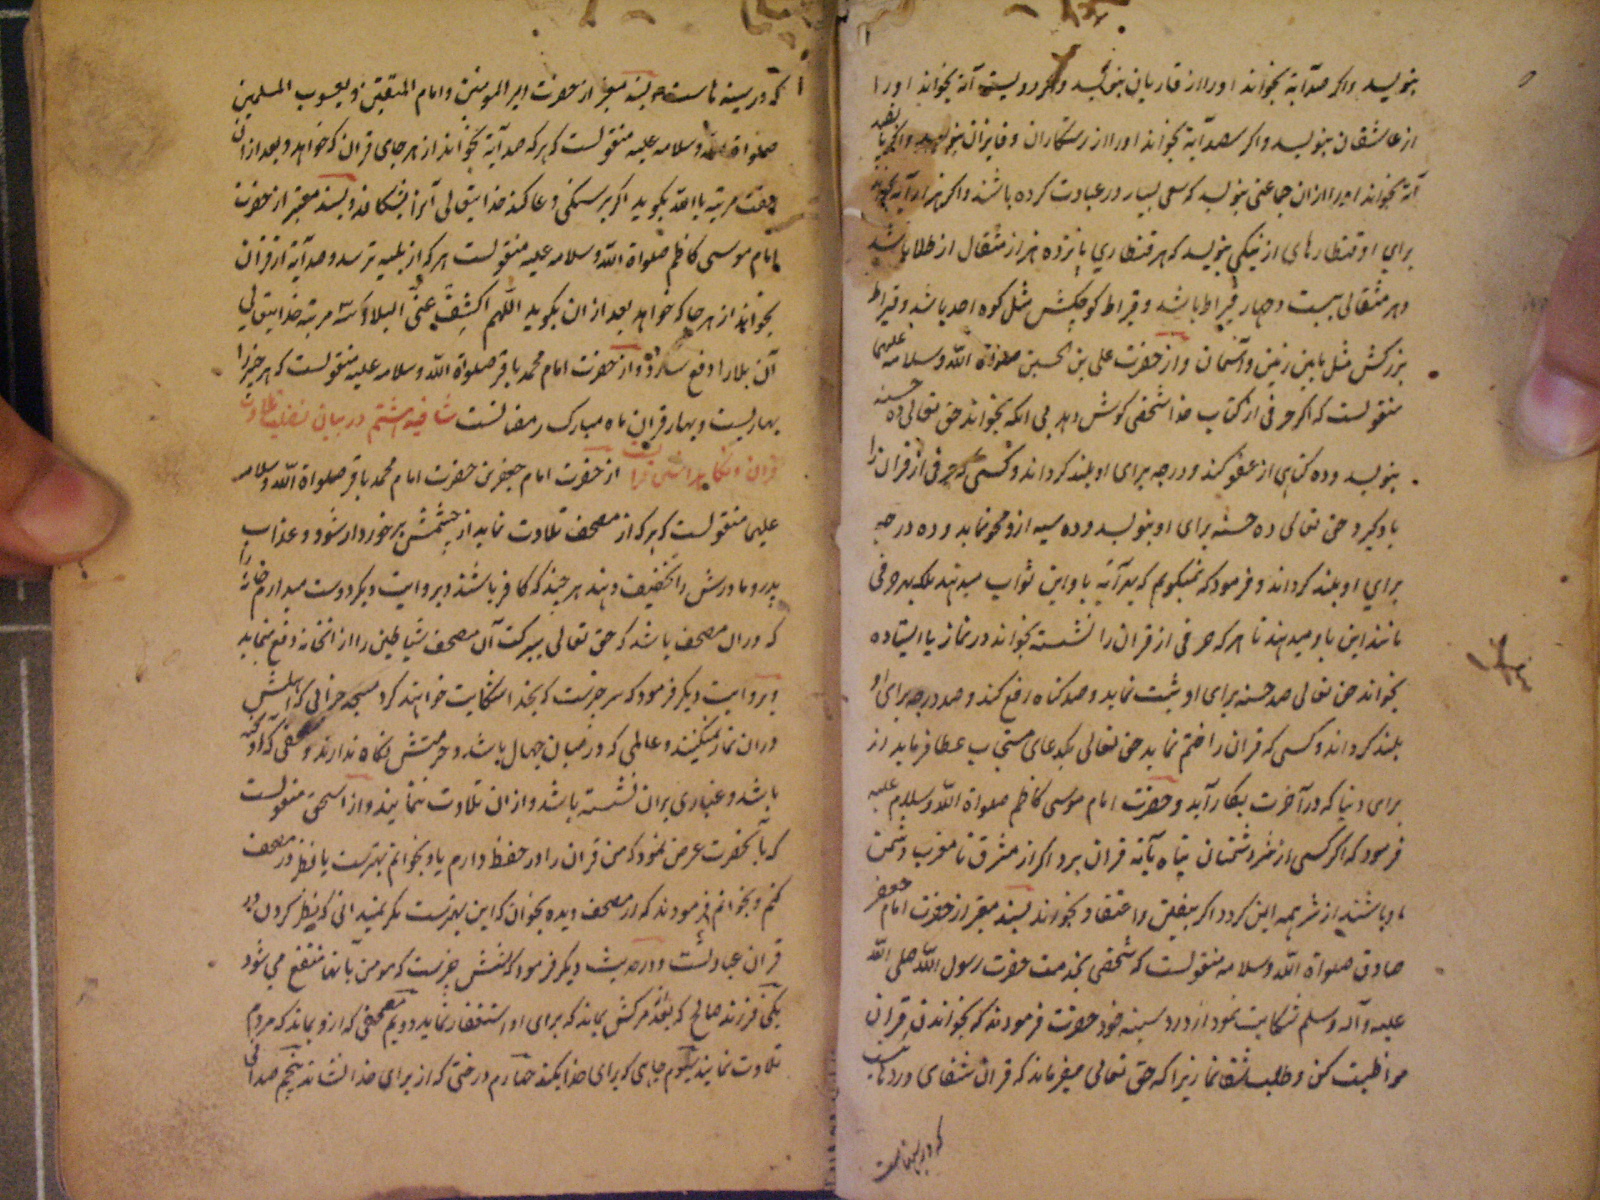 بنویسد واکر صد آیة بخواند اورا از قاریان بنویسد واکر دویست آیة بخواند اورا
از عاشقان بنویسد واکر سصد آیة بخواند اورا از رستکاران وفایزان بنویسد واکر پانصد
آیة بخواند اورا ازان جماعتی بنویسد که سعی بسیار در عبادت کرده باشند واکر هزار آیه بخواند
برای او قنطارهای از نیکی بنویسد که هر قنطاری پانزده هزار مثقال از طلا باشد
وهر مثقالی بیست وچهار قیراط باشد وقیراط کوچکش مثل کوه احد باشد وقیراط
بزرکش مثل مابین زمین وآسمان واز حضرت علی بن الحسین صلواة الله وسلامه علیهما
منقولست که اکر حرفی از کتاب خدا شخصی کوش دهد بی انکه بخواند حق تعالی ده حسنه
بنویسد وده کناه از عفو کند ودرجه برای او بلند کرداند وکسی که حرفی از قران را
یاد کیرد حق تعالی ده حسنه برای او بنویسد وده سیه ازو محو نماید وده درجه
برای او بلند کرداند وفرمود که نمیکویم که بهر آیة باو این ثواب میدهند بلکه بهر حرفی
مانند این باو میدهند تا هر که حرفی از قران را نشسته بخواند در نماز یا ایستاده
بخواند حق تعالی صد حسنه برای او ثبت نماید وصد کناه رفع کند وصد درجه برای او
بلند کرداند وکسی که قران را ختم نماید حق تعالی یکدعای مستجاب عطا فرماید از
برای دنیا که در آخرت بکار آید وحضرت امام موسی کاظم صلواة الله وسلامه علیه
فرمود که اکر کسی از شر دشمنان پناه بآیة قران برد اکر از مشرق تا مغرب دشمن
او باشند از شر همه ایمن کردد اکر بیقین واعتقاد بخواند بسند معتبر از حضرت امام جعفر
صادق صلواة الله وسلامه منقولست که شخصی بخدمت حضرت رسول الله صلی الله
علیه وآله وسلم شکایت نمود از درد سینه خود حضرت فرمودند که بخواندن قران
مواظبت کن وطلب شفا نما زیرا که حق تعالی میفرماید که قران شفای دردهاییست
که در سینهاست
که در سینه هاست بسند معتبر از حضرت امیر المومنین وامام المتقین ویعسوب المسلمین
صلواة الله وسلامه علیه منقولست که هر که صد آیة بخواند از هر جای قران که خواهد وبعد ازان
هفت مرتبه یا الله بکوید اکر بر سنکی دعا کند خدایتعالی آنرا بشکافد وبسند معتبر از حضرت
امام موسی کاظم صلواة الله وسلامه علیه منقولست هر که از بلیه ترسد وصد آیة از قران
بخواند از هر جا که خواهد بعد ازان بکوید اللهم اکشف عنی البلاء سه مرتبه خدایتعالی
آن بلا را دفع سازد واز حضرت امام محمد باقر صلواة الله وسلامه علیه منقولست که هر چیز را
بهاریست وبهار قران ماه مبارک رمضانست شافیه هشتم در بیان فضیلت تلاوت
قران ونکاه داشتن قران از حضرت امام جعفر بن حضرت امام محمد باقر صلواة الله وسلامه
علیهما منقولست که هر که از مصحف تلاوت نماید از چشمش برخوردار شود وعذاب
پدر ومادرش را تخفیف دهند هر چند که کافر باشند وبروایت دیکر دوست میدارم خانه را
که دران مصحف باشد که حق تعالی ببرکت آن مصحف شیاطین را از انخانه دفع مینماید
وبروایت دیکر فرمود که سه چیزست که بخدا شکایت خواهند کرد مسجد خرابی که اهلش
دران نماز نمیکنند وعالمی که در میان جهال باشد وحرمتش نکاه ندارند ومصحفی که آویخته
باشد وغباری بران نشسته باشد وازان تلاوت ننمایند واز اسحق منقولست
که بآنحضرت عرض نمود که من قران را در حفظ دارم یاد بخوانم بهترست یا نظر در مصحف
کنم وبخوانم فرمودند که از مصحف دیده بخوان که این بهترست مکر نمیدانی که نظر کردن در
قران عبادتست ودر حدیث دیکر فرمود که شش چیزست که مومن بآنها منتفع می شود
یکی فرزند صالح که بعد مرکش بماند که برای او استغفار نماید دویم مصحفی که ازو بماند که مردم
تلاوت نمایند سیوم چاهی که برای خدا بکند چهارم درختی که از برای خدا نشاند پنجم صدایی